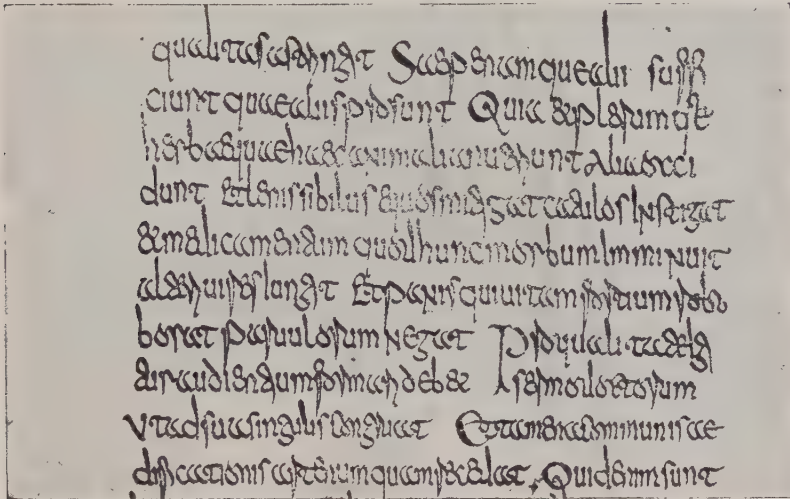 qualitas astringat Saepe namque alii suffi
ciunt quae aliis prosunt Quia et plerumque
herbae quae haec animalia nutriunt Alia occi
dunt Et lenis sibilus equos mitigat catulos Instigat
et medicamentum quod hunc morbum Imminuit
alteri uires Iungit Et panis qui uitam fortium robo
borat paruulorum Negat Pro qualitate Ig
itur audientium formari debet sermo doctorum
Ut ad sua singulis congruat Et tamen a communis ae
dificationis arte numquam recedat. Quid enim sunt